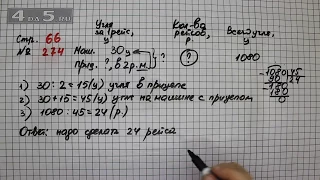 4 да 5.ru
Стр. 66
№ 274
Угля за 1 рейс, ц
Кол-ва рейсов, р.
Всего угля, ц
Маш. 30 ц
Приц. ?, в 2 р. м.
? ? 1080
1) 30 : 2 = 15 (ц) угля в прицепе
2) 30 + 15 = 45 (ц) угля на машине с прицепом
3) 1080 : 45 = 24 (р.)
1080 45
90 24
180
180
0
Ответ: надо сделать 24 рейса